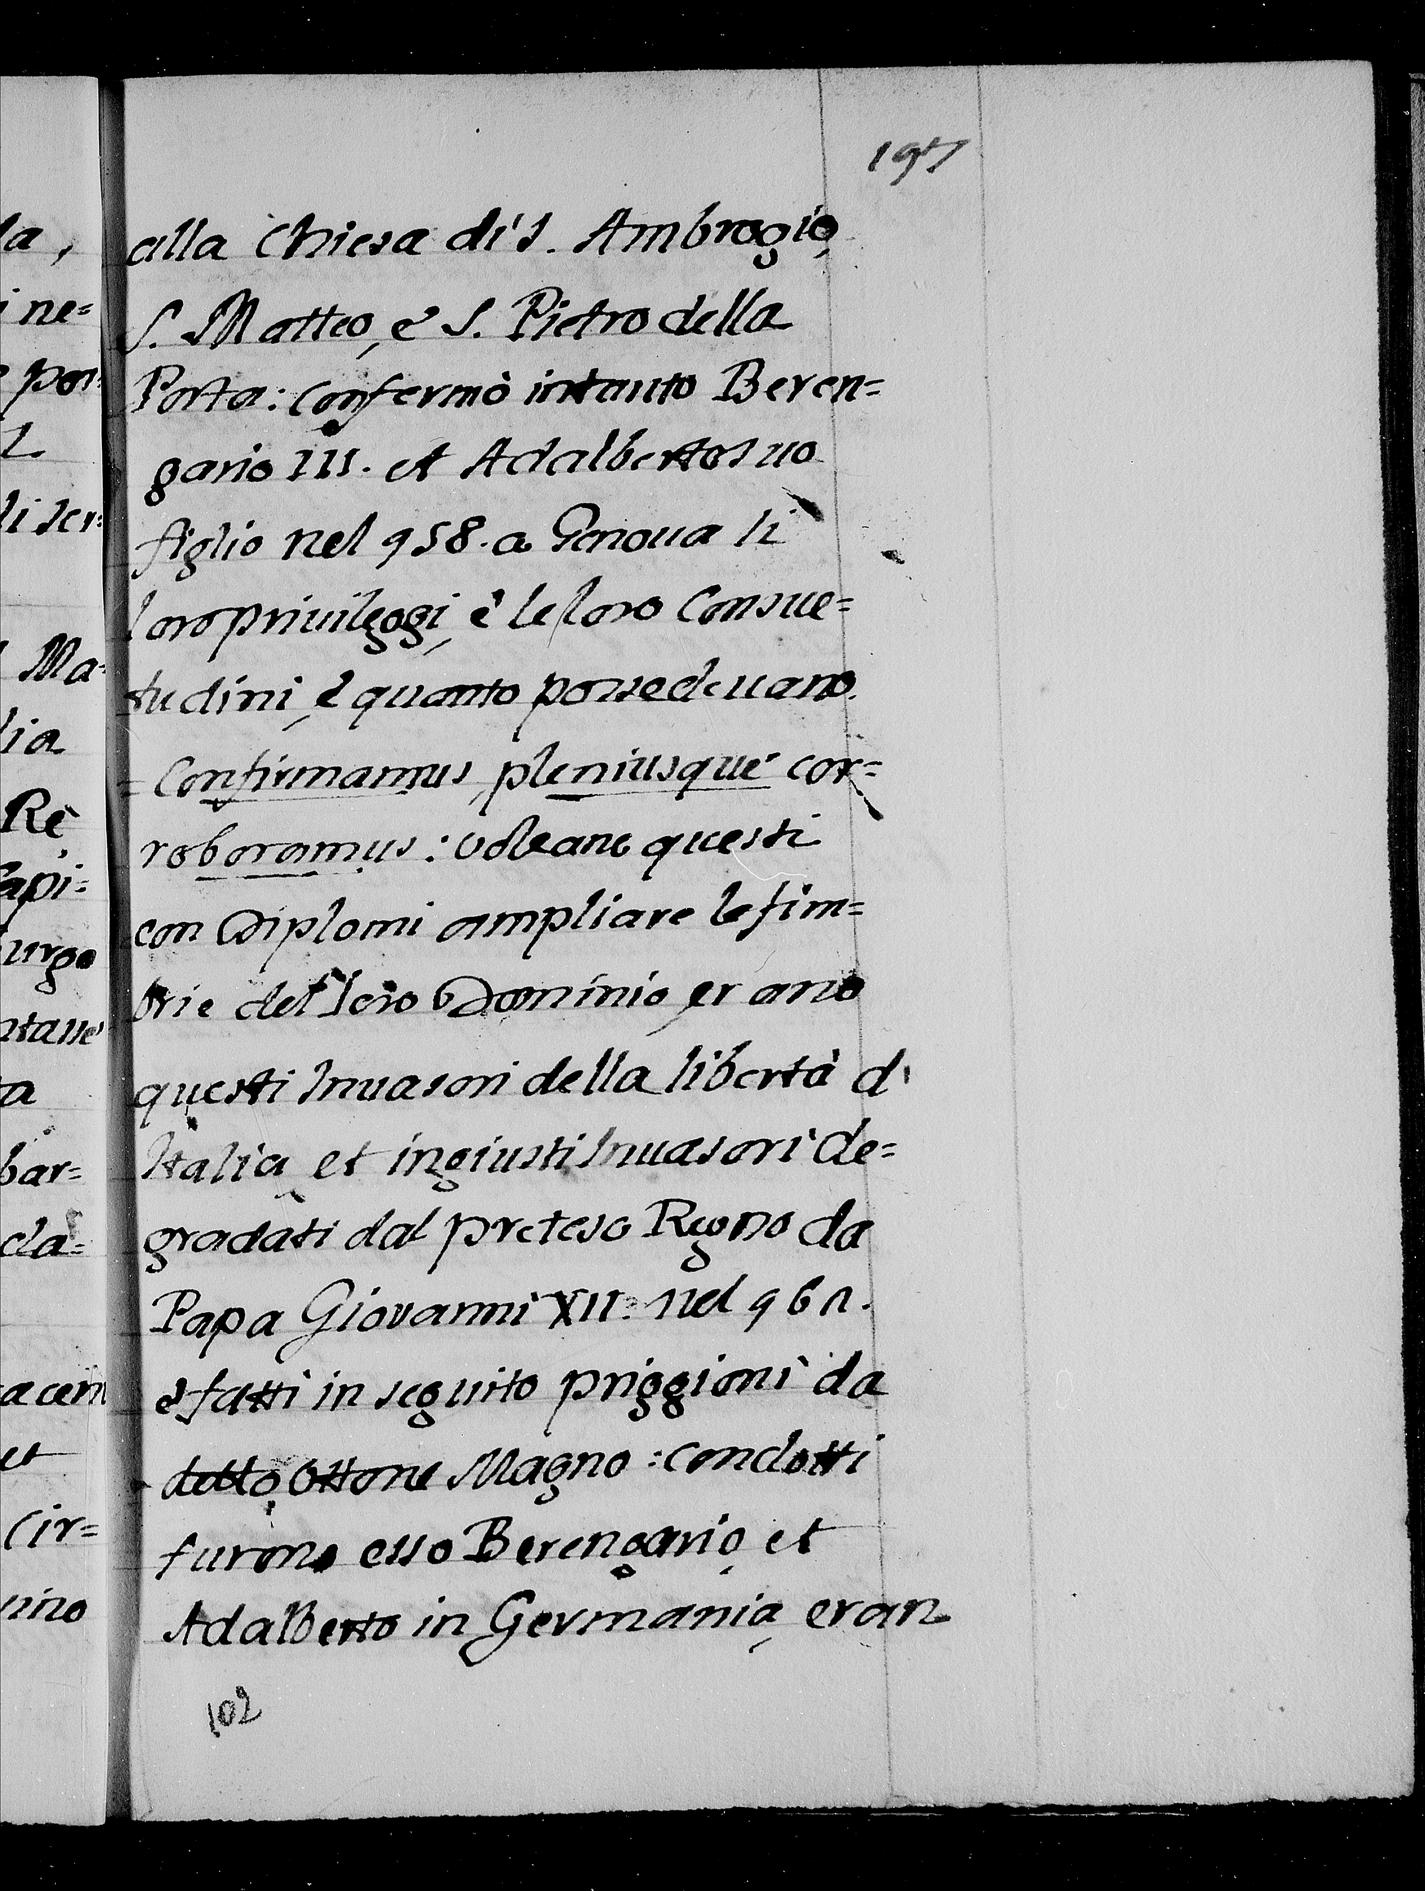 197
alla Chiesa di S. Ambrogio,
S. Matteo, e S. Pietro della
Porta: confermò intanto Beren=
gario III. et Adalberto suo
figlio nel 958. a Genoua li
loro priuileggi, è le loro Consue=
tudini, è quanto possedeuano.
= Confirmamus, pleniusque cor=
roboramus: voleano questi
con Diplomi ampliare le fim=
brie del loro Dominio, erano
questi Inuasori della libertà d'
Italia, et ingiusti Inuasori de=
gradati dal preteso Regno da
Papa Giovanni XII. nel 961.
è fatti in seguito priggioni da
detto Ottone Magno: condotti
furono esso Berengario, et
Adalberto in Germania, eran
102
la,
i ne=
e por=
li ser=
Ma=
lia
Rè
Capi=
urgo
ta
bar=
cla=
acem
et
Cir=
uino